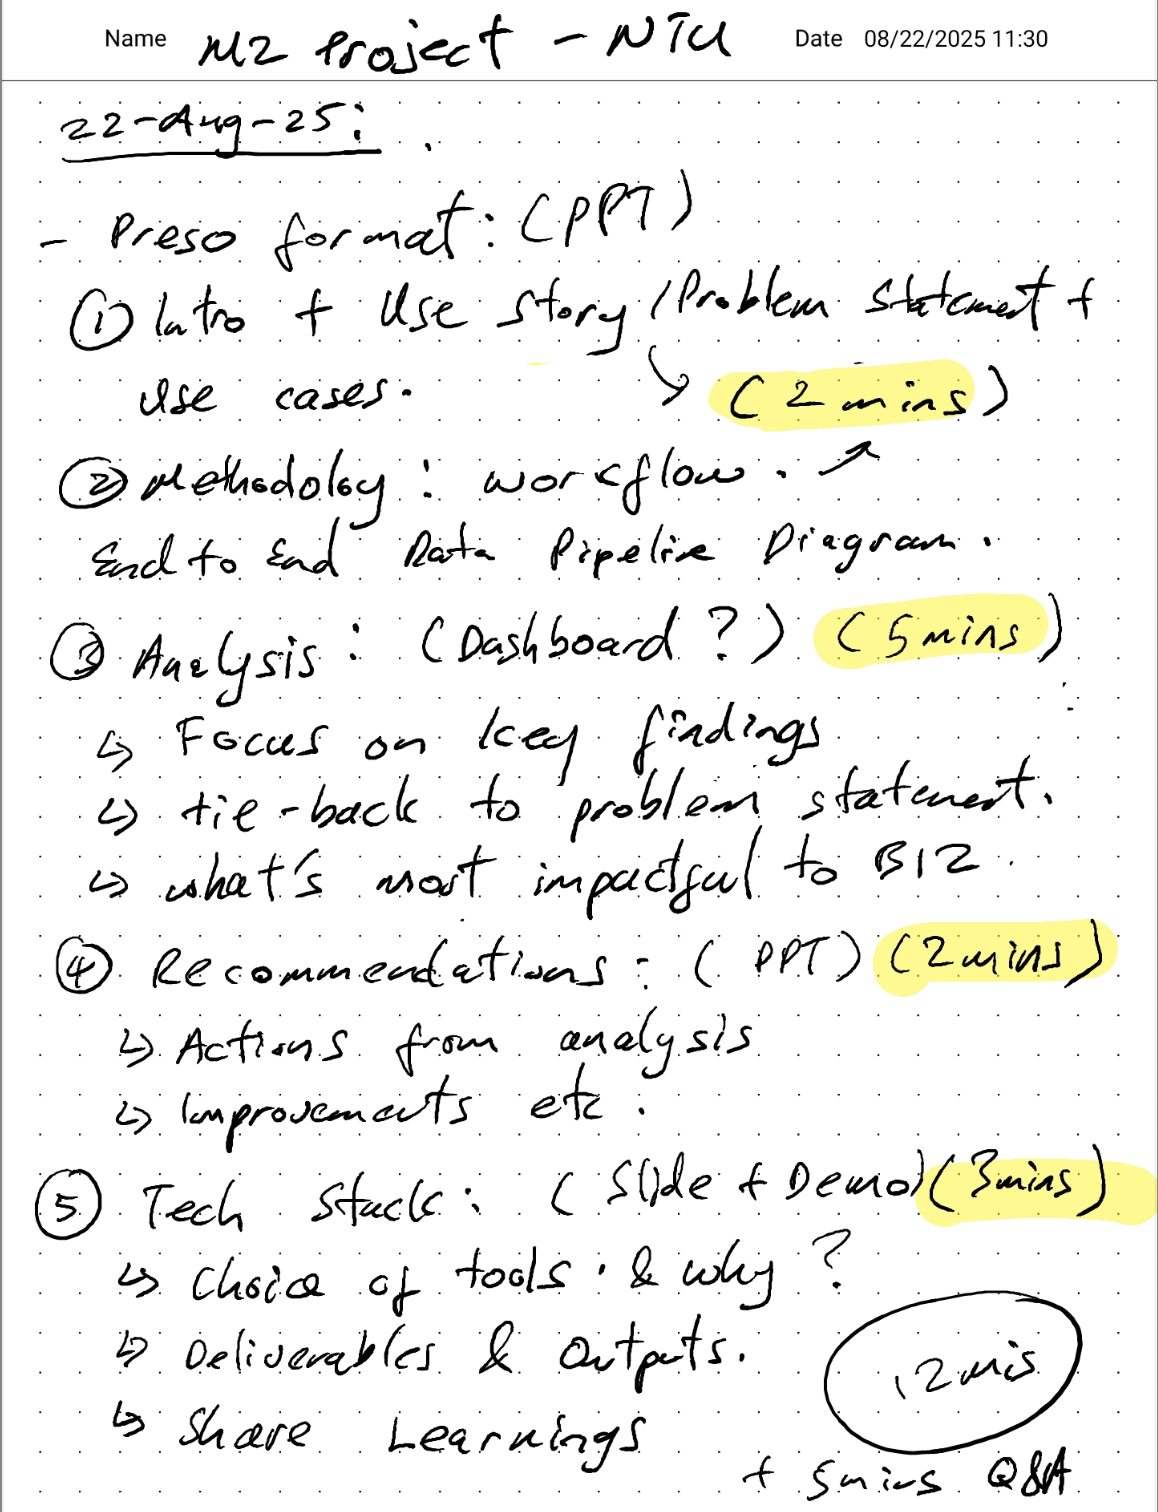 Name M2 Project - NTU Date 08/22/2025 11:30
22-Aug-25:
- Preso format: (PPT)
① Intro + Use Story / Problem Statement +
use cases. (2 mins)
② Methodology: workflow.
End to End Data Pipeline Diagram.
③ Analysis: (Dashboard?) (5 mins)
↳ Focus on key findings
↳ tie-back to problem statement.
↳ what's most impactful to BIZ
④ Recommendations: (PPT) (2 mins)
↳ Actions from analysis
↳ Improvements etc.
⑤ Tech Stack: (Slide + Demo) (3 mins)
↳ Choice of tools. & why?
↳ Deliverables & Outputs.
12 mis
↳ Share Learnings
+ 5 mins Q&A